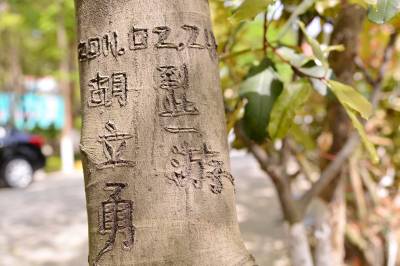 2011.02.24
胡立勇
到此一游